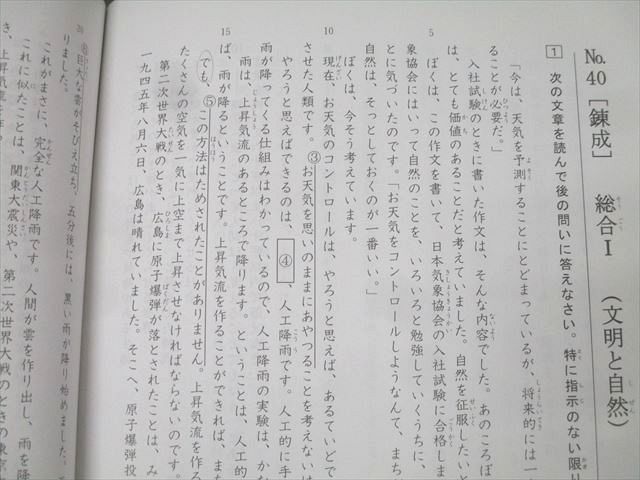 No.40 [錬成] 総合Ⅰ (文明と自然)
1 次の文章を読んで後の問いに答えなさい。特に指示のない限り
「今は、天気を予測することにとどまっているが、将来的には一
ることが必要だ。」
入社試験のときに書いた作文は、そんな内容でした。あのころぼ
は、とても価値のあることだと考えていました。自然を征服したいと
5
ぼくは、この作文を書いて、日本気象協会の入社試験に合格しま
象協会にはいって自然のことを、いろいろと勉強していくうちに、
とに気づいたのです。「お天気をコントロールしようなんて、まち
自然は、そっとしておくのが一番いい。」
ぼくは、今そう考えています。
10
現在、お天気のコントロールは、やろうと思えば、あるていどで
させた人類です。③お天気を思いのままにあやつることを考えないは
やろうと思えばできるのは、④、人工降雨です。人工的に手
雨が降ってくる仕組みはわかっているので、人工降雨の実験は、かな
雨は、上昇気流のあるところで降ります。ということは、人工的
15
ば、雨が降るということです。上昇気流を作ることができれば、まち
でも、⑤この方法はためされたことがありません。上昇気流を作る
たくさんの空気を一気に上空まで上昇させなければならないのです。
第二次世界大戦のとき、広島に原子爆弾が落とされたことは、み
一九四五年八月六日、広島は晴れていました。そこへ、原子爆弾投
巨大な雲がそびえ立ち、五分後には、黒い雨が降り始めました。
20
りました。
これがまさに、完全な人工降雨です。人間が雲を作り出し、雨を降
これに似たことは、関東大震災や、第二次世界大戦のときの東京
き、上昇気流